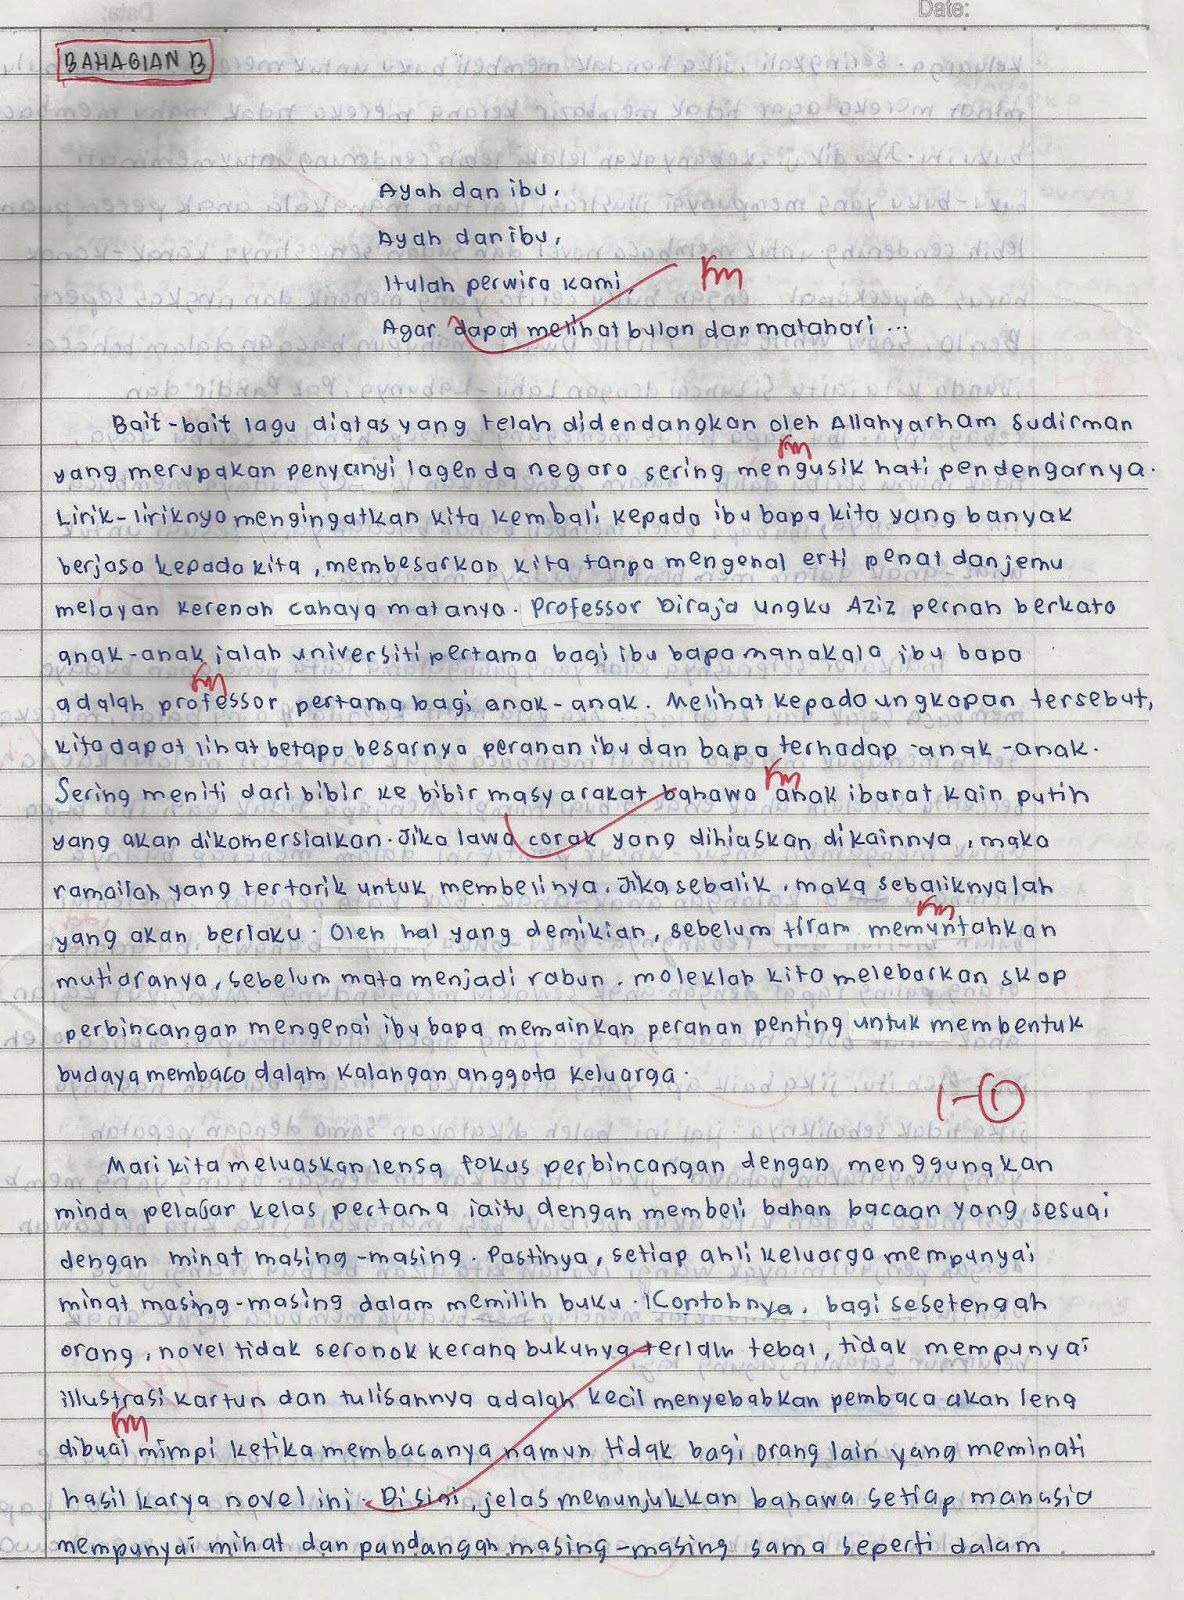 Date:
BAHAGIAN B
Ayah dan ibu,
Ayah dan ibu,
Itulah perwira kami,
Km
Agar dapat melihat bulan dan matahari ...
Bait-bait lagu diatas yang telah didendangkan oleh Allahyarham Sudirman
Km
yang merupakan penyanyi lagenda negara sering mengusik hati pendengarnya.
Lirik-liriknya mengingatkan kita kembali kepada ibu bapa kita yang banyak
berjasa kepada kita, membesarkan kita tanpa mengenal erti penat dan jemu
melayan kerenah cahaya matanya. Professor Diraja Ungku Aziz pernah berkata
anak-anak ialah universiti pertama bagi ibu bapa manakala ibu bapa
Km
adalah professor pertama bagi anak-anak. Melihat kepada ungkapan tersebut,
kita dapat lihat betapa besarnya peranan ibu dan bapa terhadap anak-anak.
Km
Sering meniti dari bibir ke bibir masyarakat bahawa anak ibarat kain putih
yang akan dikomersialkan. Jika lawa corak yang dihiaskan dikainnya, maka
ramailah yang tertarik untuk membelinya. Jika sebalik, maka sebaliknyalah
Km
yang akan berlaku. Oleh hal yang demikian, sebelum tiram memuntahkan
mutiaranya, sebelum mata menjadi rabun, moleklah kita melebarkan skop
perbincangan mengenai ibu bapa memainkan peranan penting untuk membentuk
budaya membaca dalam kalangan anggota keluarga.
1-1
Mari kita meluaskan lensa fokus perbincangan dengan menggungkan
minda pelajar kelas pertama iaitu dengan membeli bahan bacaan yang sesuai
dengan minat masing-masing. Pastinya, setiap ahli keluarga mempunyai
minat masing-masing dalam memilih buku. Contohnya, bagi sesetengah
orang, novel tidak seronok kerana bukunya terlalu tebal, tidak mempunyai
illustrasi kartun dan tulisannya adalah kecil menyebabkan pembaca akan lena
Km
dibuai mimpi ketika membacanya namun tidak bagi orang lain yang meminati
hasil karya novel ini. Di sini, jelas menunjukkan bahawa setiap manusia
mempunyai minat dan pandangan masing-masing sama seperti dalam